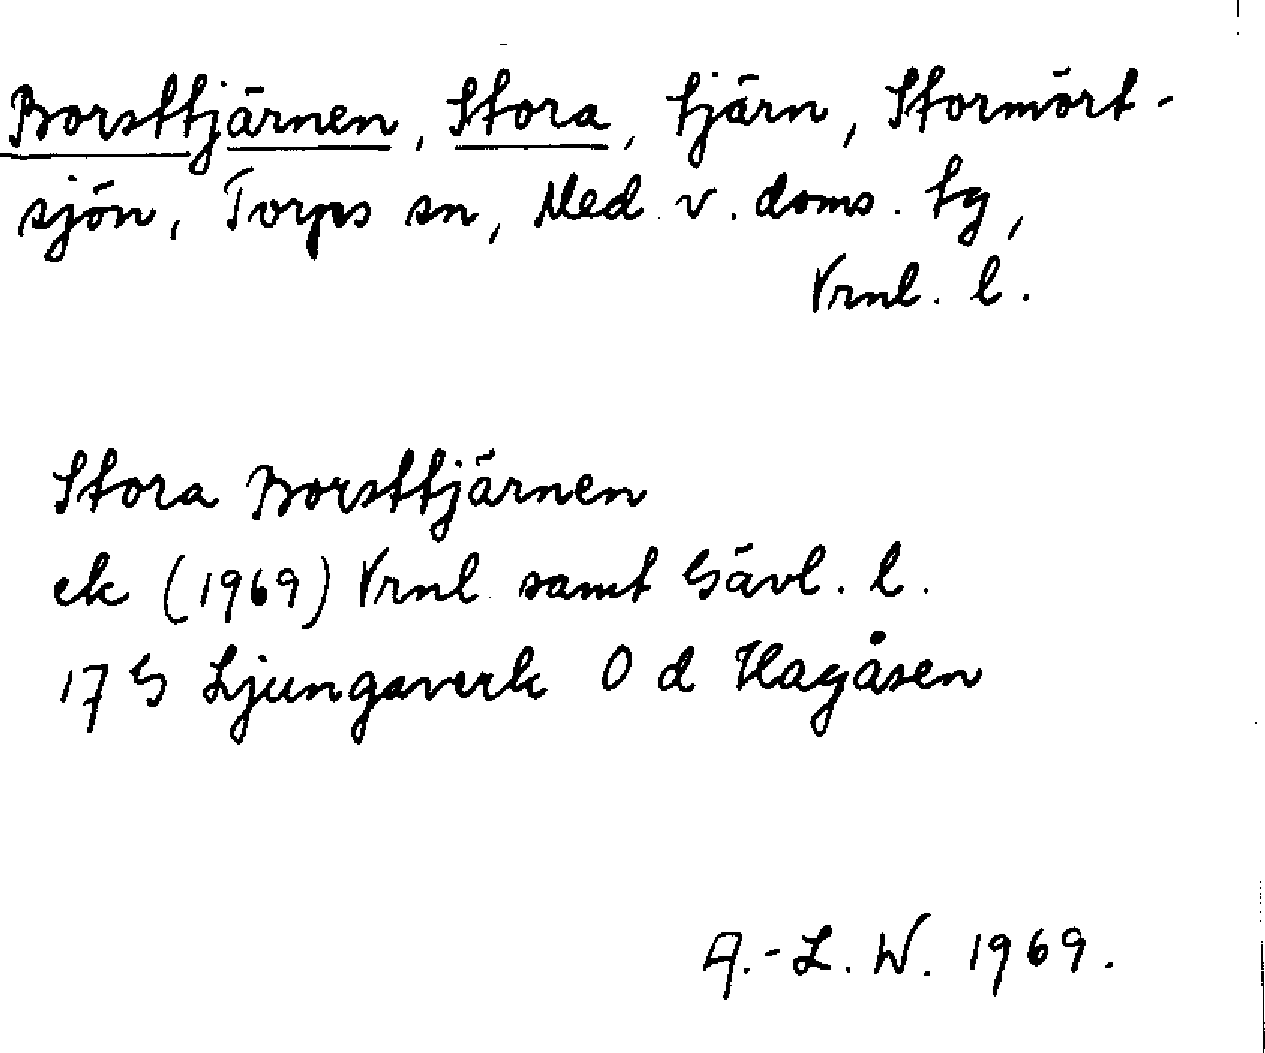 Borsttjärnen, Stora, tjärn, Stormört-
sjön, Torps sn, Med. v. doms. tg,
Vrnl. l.
Stora Borsttjärnen
ek (1969) Vrnl. samt Gävl. l.
17 G Ljungaverk 0 d Hagåsen
A.-L. W. 1969.